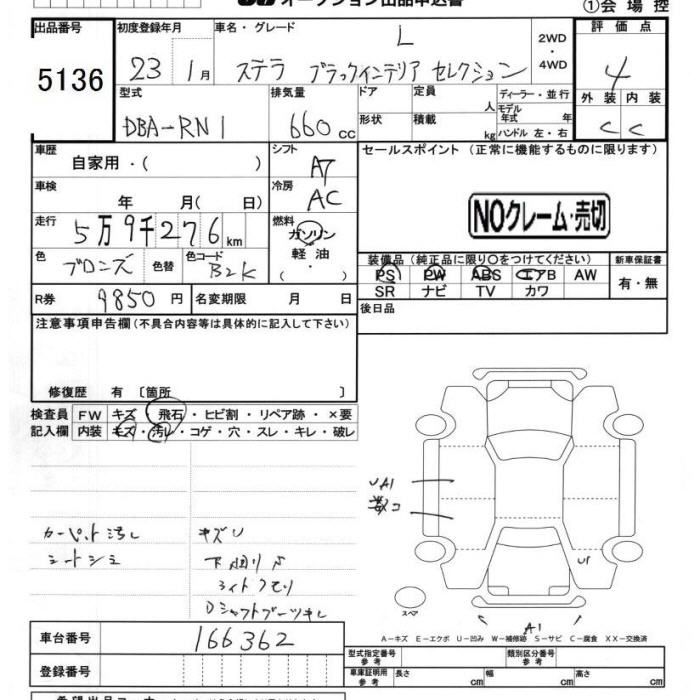 オークション出品申込書
①会場控
出品番号 初度登録年月 車名・グレード 2WD・4WD 評価点
5136 23 1月 ステラ L ブラックインテリア セレクション 4
型式 排気量 ドア 定員 人 ディーラー・並行 外装 内装
DBA-RN1 660cc 形状 積載 kg モデル年式 年 C C
ハンドル 左・右
車歴 自家用・( ) シフト AT セールスポイント (正常に機能するものに限ります)
車検 年 月(日) 冷房 AC
NOクレーム・売切
走行 5万9千276km 燃料 ガソリン
軽油
・( )
色 ブロンズ 色替 色コード B2K
装備品 (純正品に限り○をつけてください) 新車保証書
PS PW ABS エアB AW 有・無
SR ナビ TV カワ
R券 9850円 名変期限 月 日
後日品
注意事項申告欄 (不具合内容等は具体的に記入して下さい)
修復歴 有 〔箇所 〕
検査員 FW キズ・飛石・ヒビ割・リペア跡・×要
記入欄 内装 キズ・汚レ・コゲ・穴・スレ・キレ・破レ
UA1
数コ
カーペット汚レ キズU
シートシミ 下廻りS
ライトクモリ
Dシャフトブーツキレ
U1
スペア
A1
A-キズ E-エクボ U-凹み W-補修跡 S-サビ C-腐食 XX-交換済
車台番号 166362
型式指定番号 参考 類別区分番号 参考
登録番号 車庫証明用 参考 長さ cm 幅 cm 高さ cm